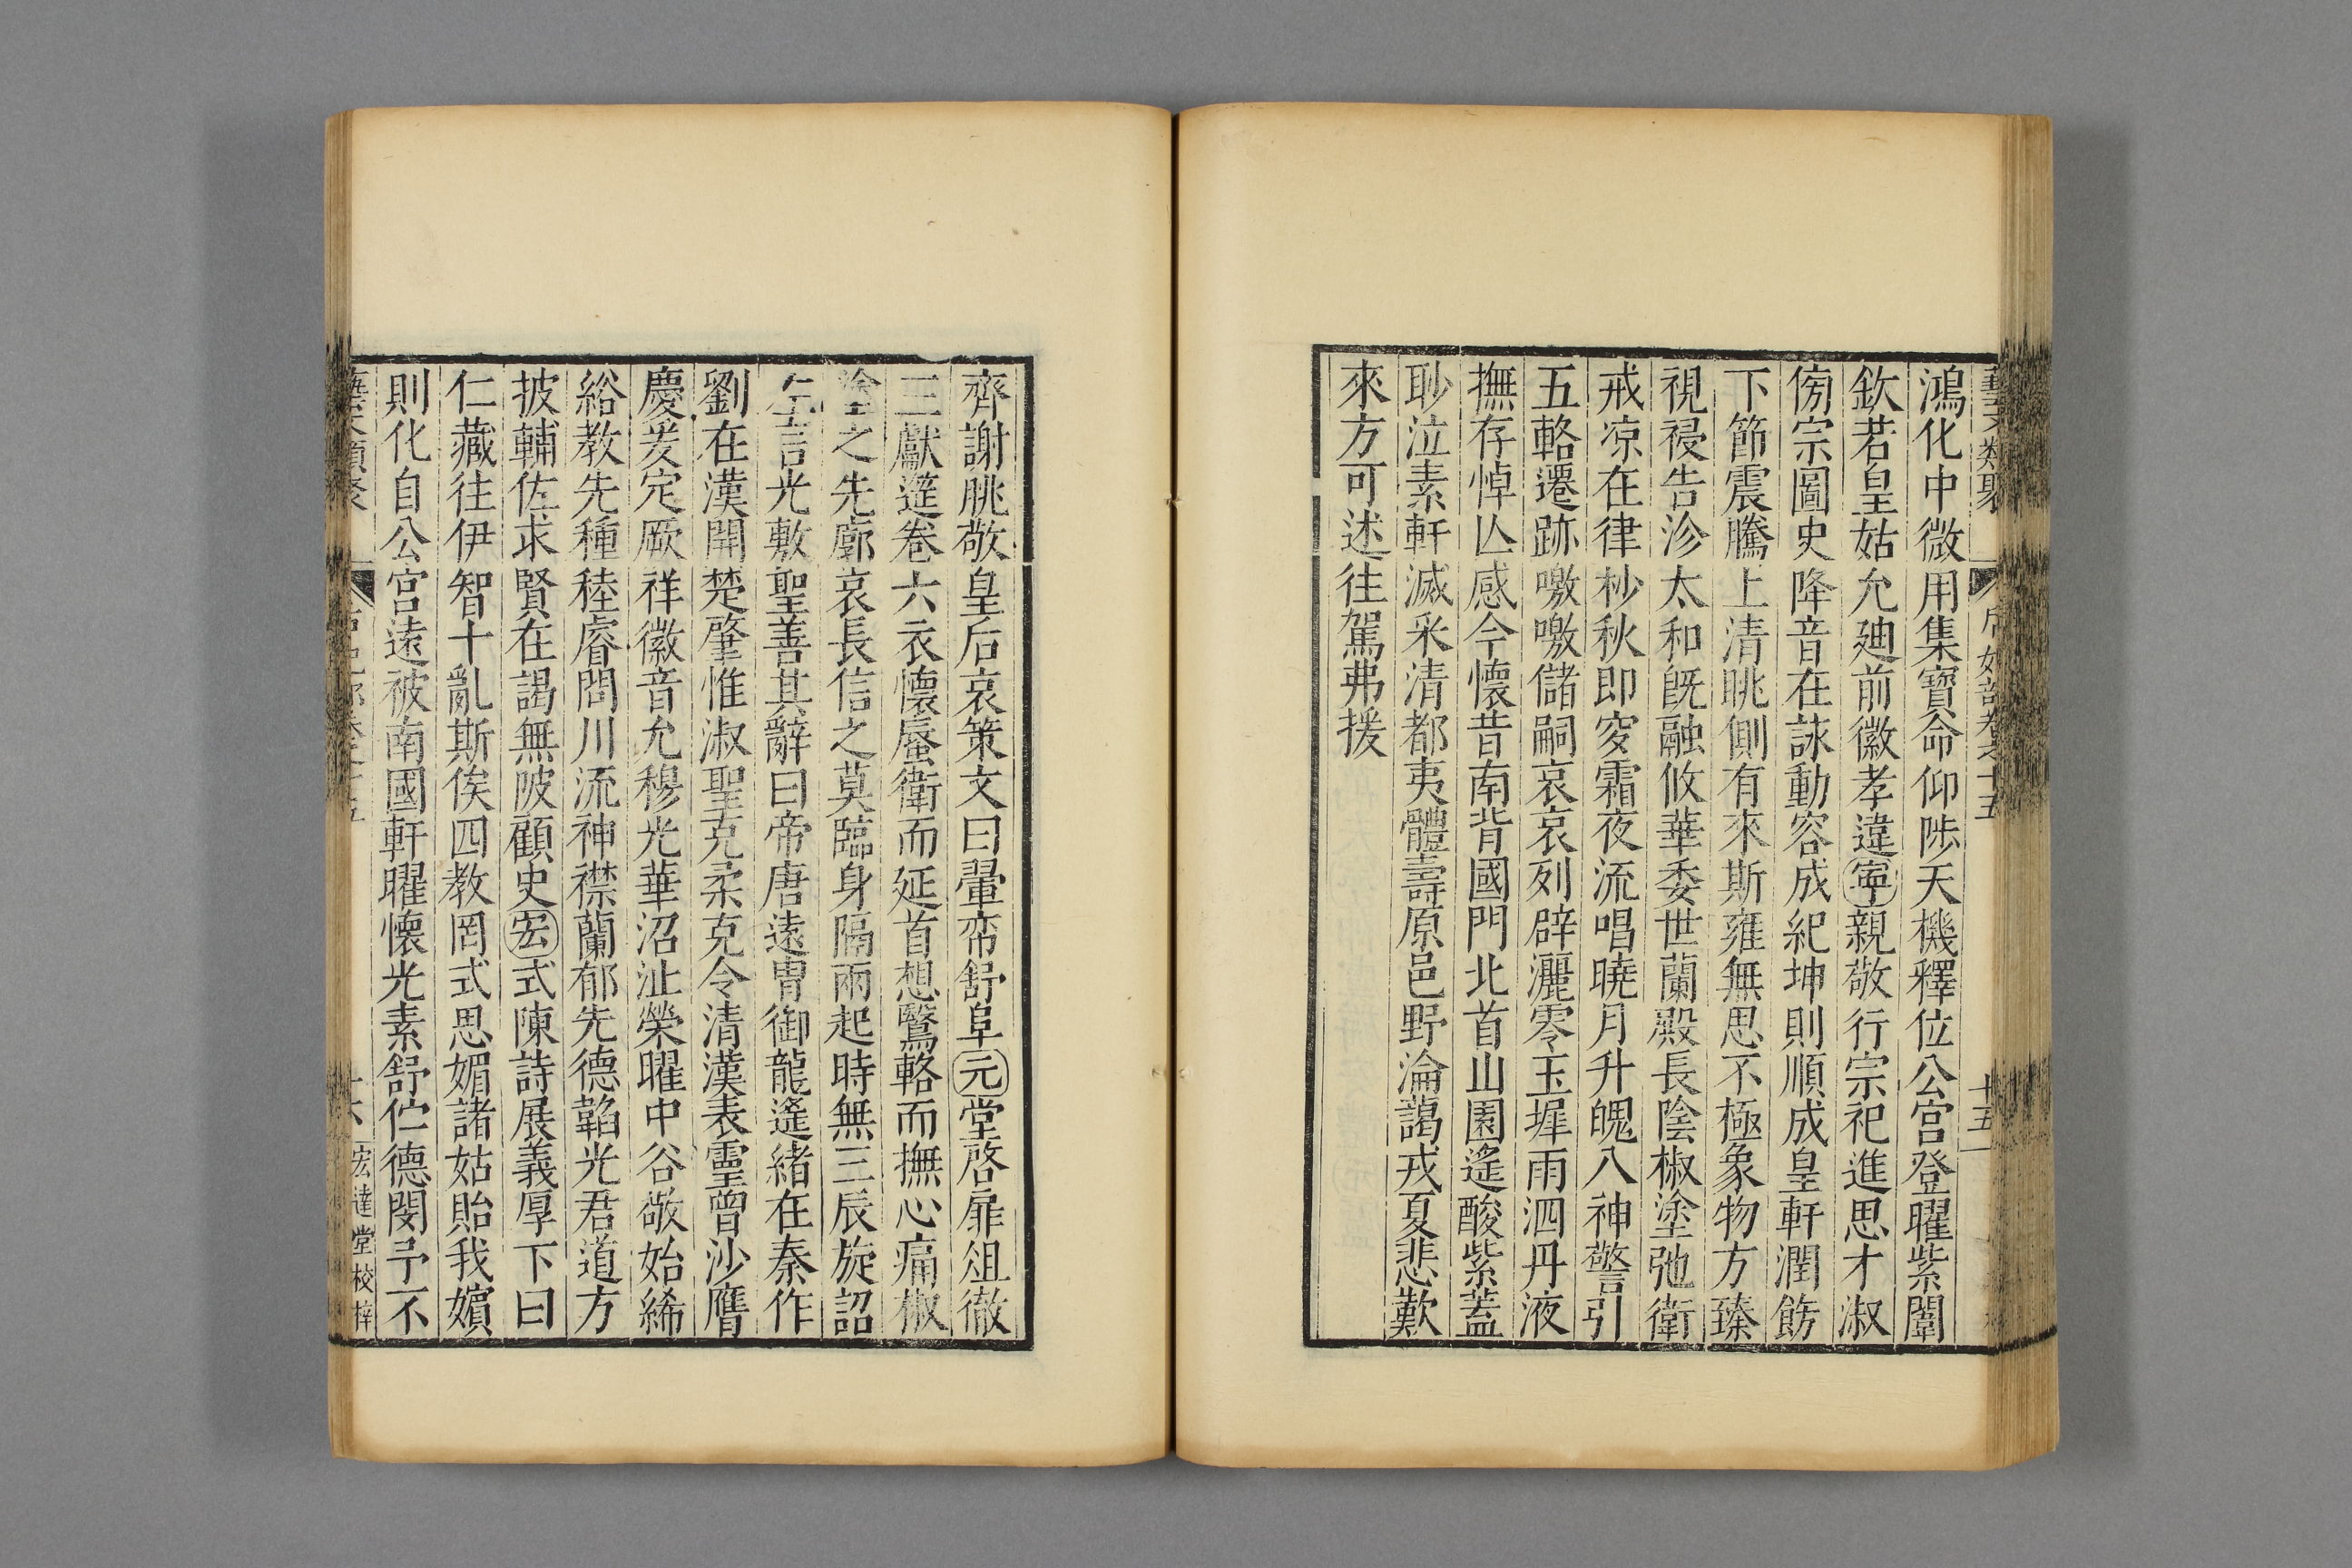 藝文類聚 后妃部卷之十五 十五
鴻化中微用集寶命仰陟天機釋位公宫登曜紫闈
欽若皇姑允廸前徽孝違寧親敬行宗祀進思才淑
傍宗圖史降音在詠動容成紀坤則順成皇軒潤飭
下節震騰上清眺側有來斯雍無思不極象物方臻
視祲告沴太和旣融攸華委世蘭殿長陰椒塗弛衛
戒凉在律杪秋即穸霜夜流唱曉月升魄八神警引
五輅遷跡噭噭儲嗣哀哀列辟灑零玉墀雨泗丹液
撫存悼亾感今懷昔南背國門北首山園遙酸紫蓋
眇泣素軒滅采清都夷體壽原邑野淪藹戎夏悲歎
來方可述往駕弗援
齊謝朓敬皇后哀策文曰翬帟舒阜元堂啓扉俎徹
三獻筵卷六衣懷蜃衛而延首想鷖輅而撫心痛椒
塗之先廓哀長信之莫臨身隔兩起時無三辰旋詔
左言光敷聖善其辭曰帝唐遠胄御龍遙緒在秦作
劉在漢開楚肇惟淑聖克柔克令清漢表靈曾沙膺
慶爰定厥祥徽音允穆光華沼沚榮曜中谷敬始絺
綌教先種稑睿問川流神襟蘭郁先德韜光君道方
披輔佐求賢在謁無陂顧史宏式陳詩展義厚下曰
仁藏往伊智十亂斯俟四教罔式思媚諸姑貽我嬪
則化自公宫遠被南國軒曜懷光素舒佇德閔予不
藝文類聚 后妃部卷之十五 十六 宏達堂校梓